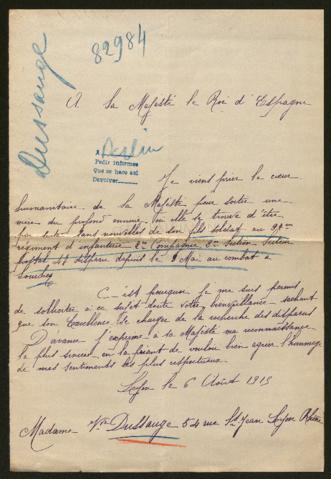 Dussauge
82984
A Sa Majesté le Roi d'Espagne
A Berlin
Pedir informes
Que se hace así
Devolver
Je viens prier le cœur
humanitaire de Sa Majesté pour sortir une
mère du profond ennui où elle se trouve d'être
sans nouvelles de son fils soldat au 99e
régiment d'infanterie 2e Compagnie 3e Section Secteur
postal disparu depuis le 9 Mai au combat à
Souchez
C'est pourquoi je me suis permis
de solliciter à ce sujet votre bienveillance sachant
que son Excellence se charge de la recherche des disparus
D'avance j'exprime à sa Majesté ma reconnaissance
la plus sincère en la priant de vouloir bien agréer l'hommage
de mes sentiments les plus respectueux
Lyon le 6 Août 1915
Madame Vve Dussauge 54 rue St Jean Lyon Rhône